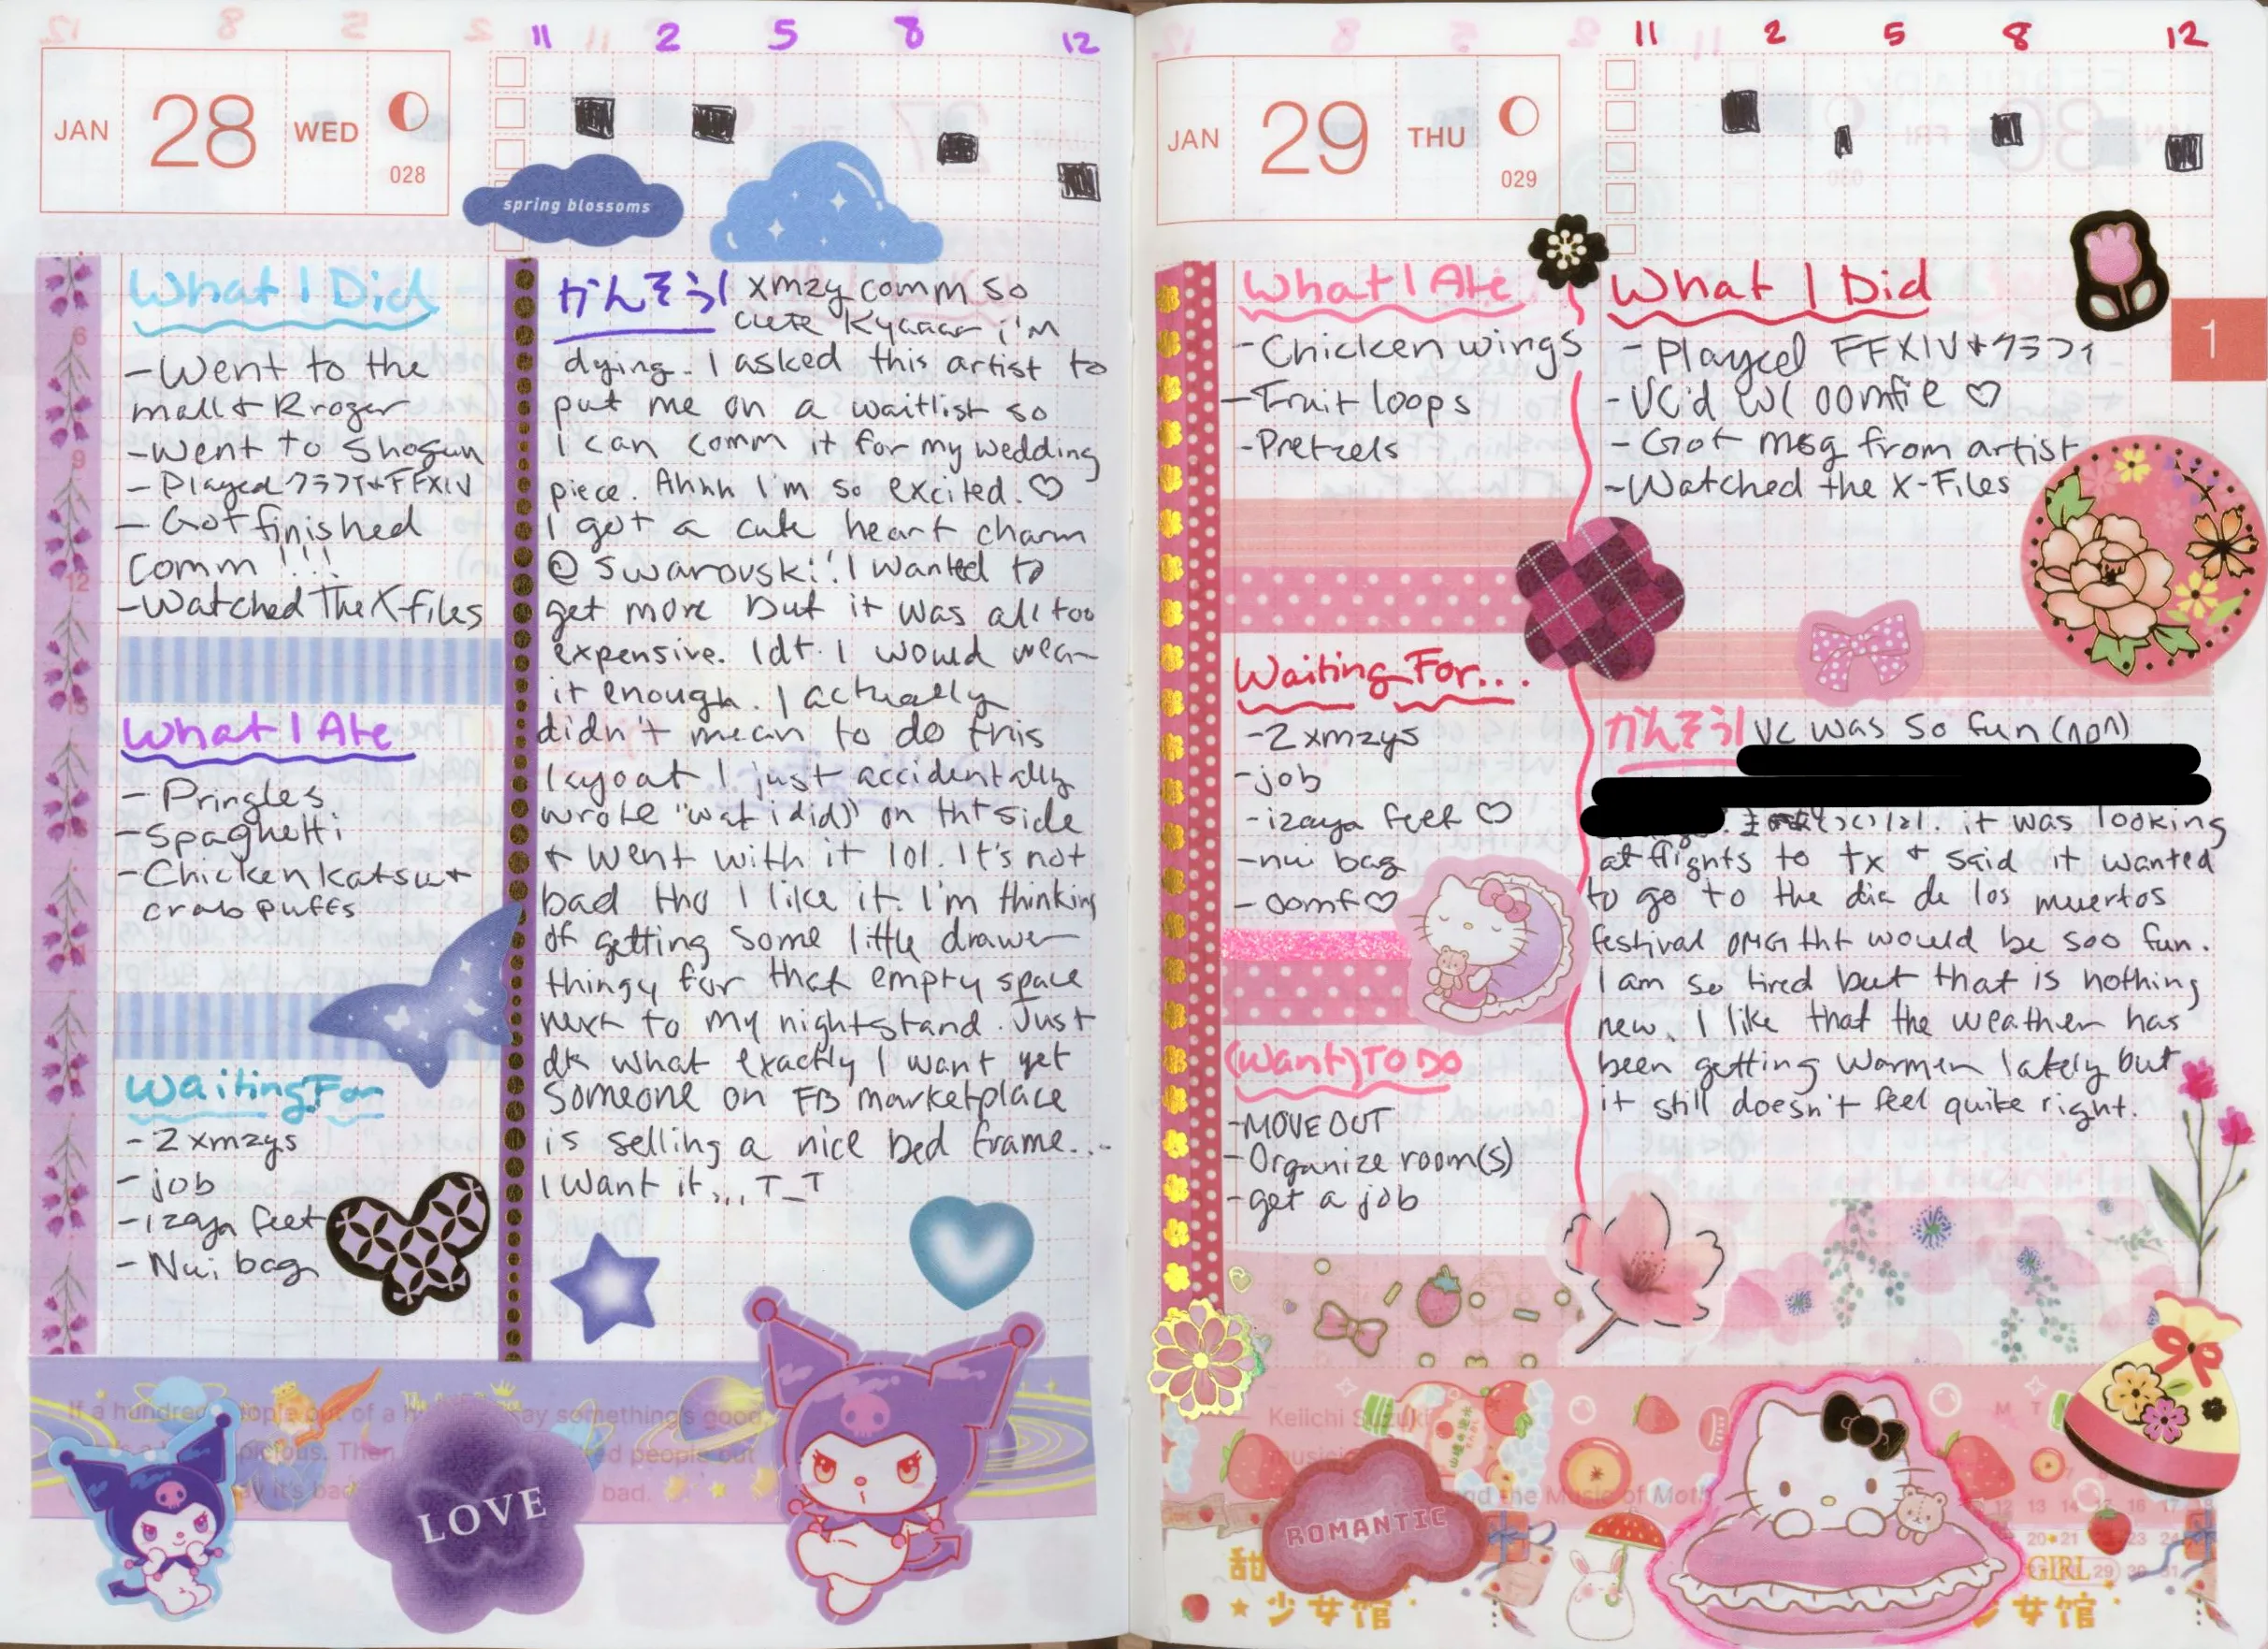 11 2 5 8 12
JAN 28 WED
028
spring blossoms
What I Did
-Went to the
mall + Kroger
-Went to Shogun
-Played クラフィ+FFXIV
-Got finished
Comm!!!
-Watched The X-files
What I Ate
-Pringles
-Spaghetti
-Chicken katsu +
crab puffs
Waiting For
-2 xmzys
-job
-izaya feet
-Nui bag
かんそう! xmzy comm so
cute Kyaaaa i'm
dying. I asked this artist to
put me on a waitlist so
I can comm it for my wedding
piece. Ahhh I'm so excited. ♡
I got a cute heart charm
@ Swarovski! I wanted to
get more but it was all too
expensive. Idt I would wear
it enough. I actually
didn't mean to do this
layout I just accidentally
wrote "wat i did" on tht side
+ went with it lol. It's not
bad tho I like it. I'm thinking
of getting some little drawer
thingy for that empty space
next to my nightstand. Just
dk what exactly I want yet
Someone on FB marketplace
is selling a nice bed frame...
I want it... T_T
If a hundred people out of a h say something's good
picious. Then ed people out
ay it's bad bad.
LOVE
11 2 5 8 12
JAN 29 THU
029
1
What I Ate
-Chicken wings
-Fruit loops
-Pretzels
Waiting For...
-2 xmzys
-job
-izaya feet ♡
-nui bag
-oomf ♡
(Want) TO DO
-MOVE OUT
-Organize room(s)
-get a job
What I Did
-Played FFXIV+クラフィ
-VC'd w/ oomfie ♡
-Got msg from artist
-Watched the X-Files
かんそう! VC was so fun
it was looking
at flights to tx + said it wanted
to go to the dia de los muertos
festival OMG tht would be soo fun.
I am so tired but that is nothing
new. I like that the weather has
been getting warmer lately but
it still doesn't feel quite right.
Keiichi Suzuki
nd the Music of Moth
ROMANTIC
甜 GIRL
少女馆 女馆